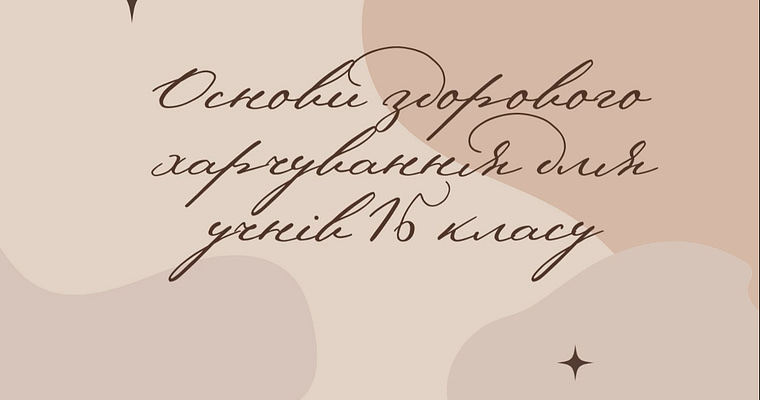 Основи здорового
харчування для
учнів 15 класу